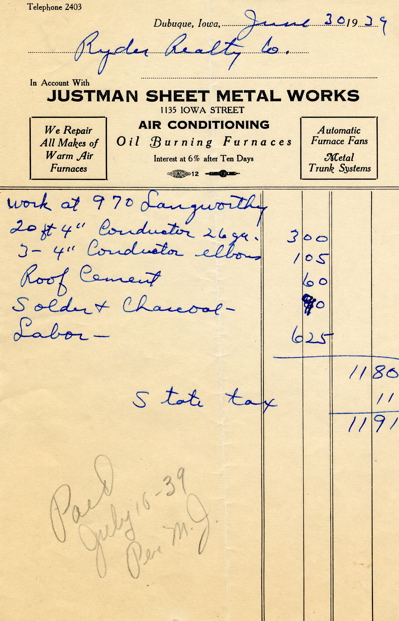 Telephone 2403
Dubuque, Iowa, June 30 19 39
Ryder Realty Co.
In Account With
JUSTMAN SHEET METAL WORKS
1135 IOWA STREET
AIR CONDITIONING
Oil Burning Furnaces
Interest at 6% after Ten Days
12
We Repair
All Makes of
Warm Air
Furnaces
Automatic
Furnace Fans
Metal
Trunk Systems
Work at 970 Langworthy
20 ft 4" Conductor 26 ga. 300
3 - 4" Conductor elbows 105
Roof Cement 60
Solder & Charcoal - 90
Labor - 625
1180
State tax 11
1191
Paid
July 16-39
Per M.J.